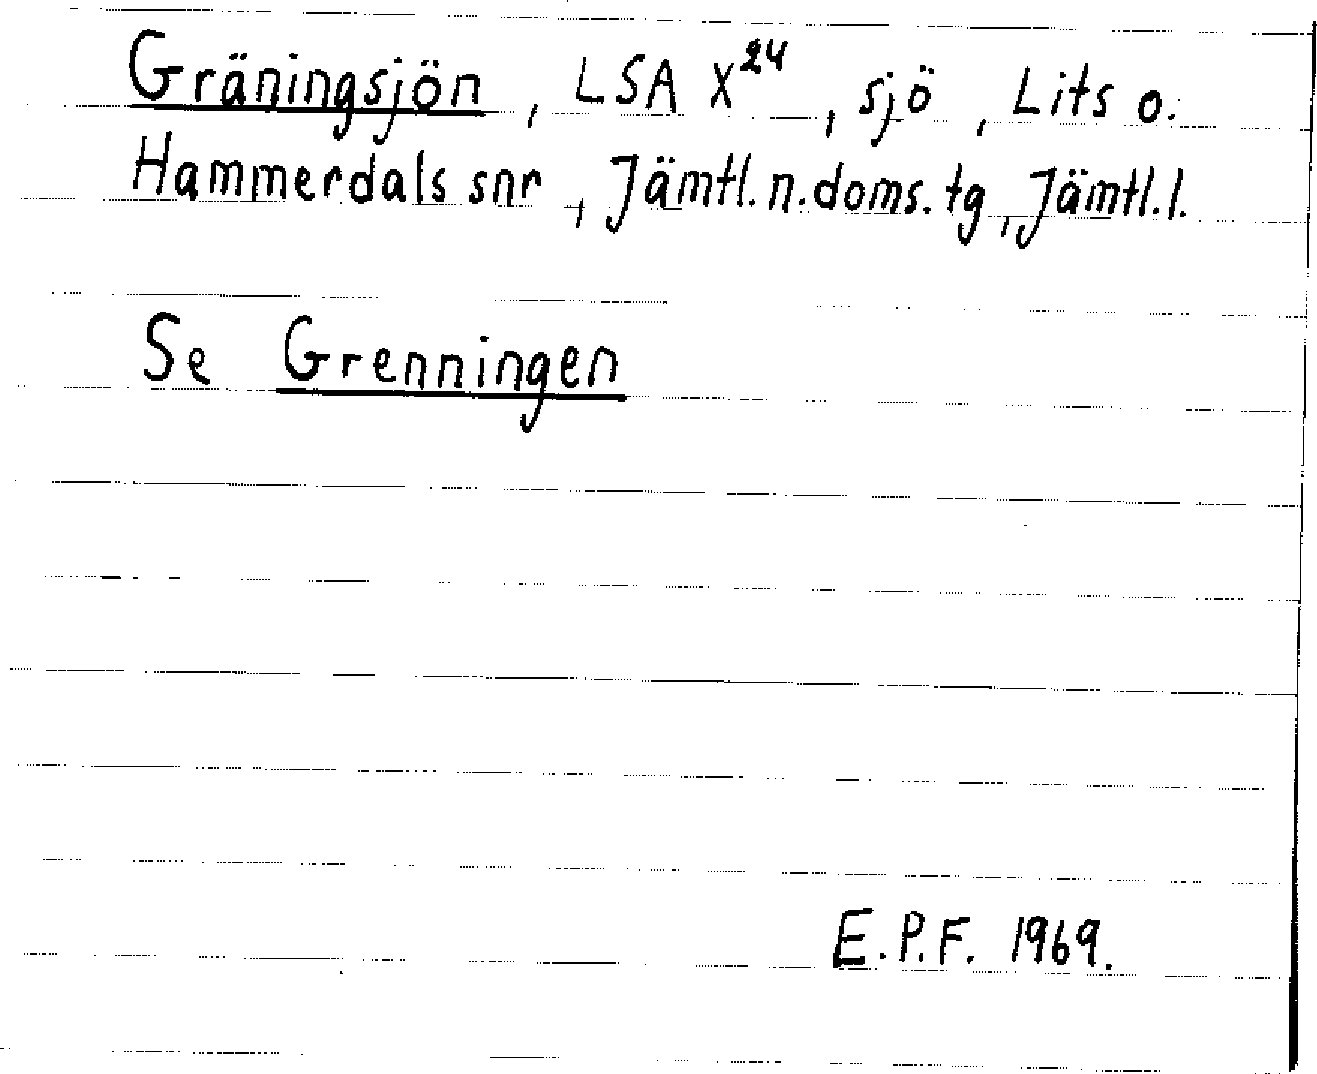 Gräningsjön, LSA X²⁴, sjö, Lits o.
Hammerdals snr, Jämtl. n. doms. tg, Jämtl. l.
Se Grenningen
E.P.F. 1969.